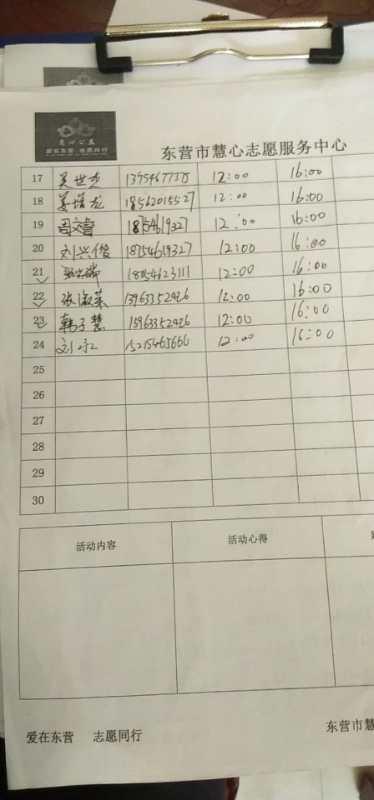 爱在东营 志愿同行
东营市慧心志愿服务中心
17 12:00 16:00
18 姜增龙 18562015527 12:00 16:00
19 12:00 16:00
20 刘兴俊 18754619327 12:00 16:00
21 18154623111 12:00 16:00
22 张淑英 15963352926 12:00 16:00
23 韩子慧 15963352926 12:00 16:00
24 刘 15215465666 12:00 16:00
25
26
27
28
29
30
活动内容 活动心得
爱在东营 志愿同行 东营市慧